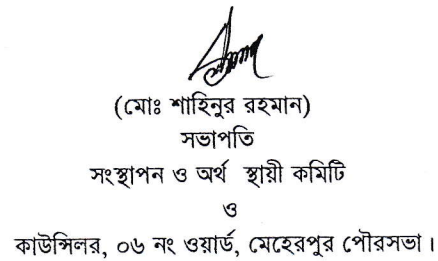 (মোঃ শাহিনুর রহমান)
সভাপতি
সংস্থাপন ও অর্থ স্থায়ী কমিটি
ও
কাউন্সিলর, ০৬ নং ওয়ার্ড, মেহেরপুর পৌরসভা।